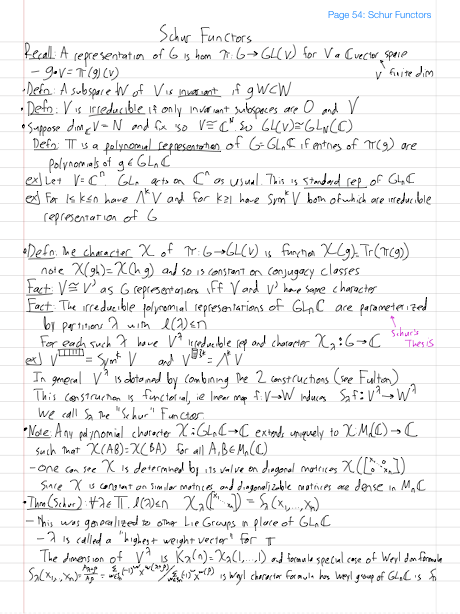 Page 54: Schur Functors
Schur Functors
Recall: A representation of G is hom π: G→GL(V) for V a ℂ vector space
– g·v = π(g)(v)
finite dim
• Defn: A subspace W of V is invariant if gW⊂W
• Defn: V is irreducible if only invariant subspaces are 0 and V
• Suppose dim_ℂ V = N and fix iso V≅ℂ^N. So GL(V)≅GL_N(ℂ)
Defn: π is a polynomial representation of G=GL_nℂ if entries of π(g) are
polynomials of g∈GL_nℂ
ex) Let V=ℂ^n. GL_n acts on ℂ^n as usual. This is standard rep of GL_nℂ
ex) For 1≤k≤n have Λ^k V and for k≥1 have Sym^k V both of which are irreducible
representation of G
• Defn: The character χ of π: G→GL(V) is function χ(g)=Tr(π(g))
note χ(gh)=χ(hg) and so is constant on conjugacy classes
Fact: V≅V' as G representations iff V and V' have same character
Fact: The irreducible polynomial representations of GL_nℂ are parameterized
by partitions λ with l(λ)≤n
Schur's Thesis
For each such λ have V^λ irreducible rep and character χ_λ: G→ℂ
ex) V = Sym^k V and V = Λ^k V
In general V^λ is obtained by combining the 2 constructions (see Fulton)
This construction is functorial, ie linear map f: V→W induces S_λ f: V^λ→W^λ
We call S_λ the "Schur" Functor
• Note: Any polynomial character χ: GL_nℂ→ℂ extends uniquely to χ: M_n(ℂ)→ℂ
such that χ(AB)=χ(BA) for all A,B∈M_n(ℂ)
– one can see χ is determined by its value on diagonal matrices χ([x_1 0 ⋱ 0 x_n])
Since χ is constant on similar matrices and diagonalizable matrices are dense in M_nℂ
• Thm (Schur): ∀λ∈Π, l(λ)≤n χ_λ([x_1 ⋱ x_n]) = S_λ(x_1,...,x_n)
– This was generalized to other Lie Groups in place of GL_nℂ
– λ is called a "highest weight vector" for π
The dimension of V^λ is K_λ(n)=χ_λ(1,...,1) and formula special case of Weyl dim formula
is Weyl character formula has Weyl group of GL_nℂ is S_n